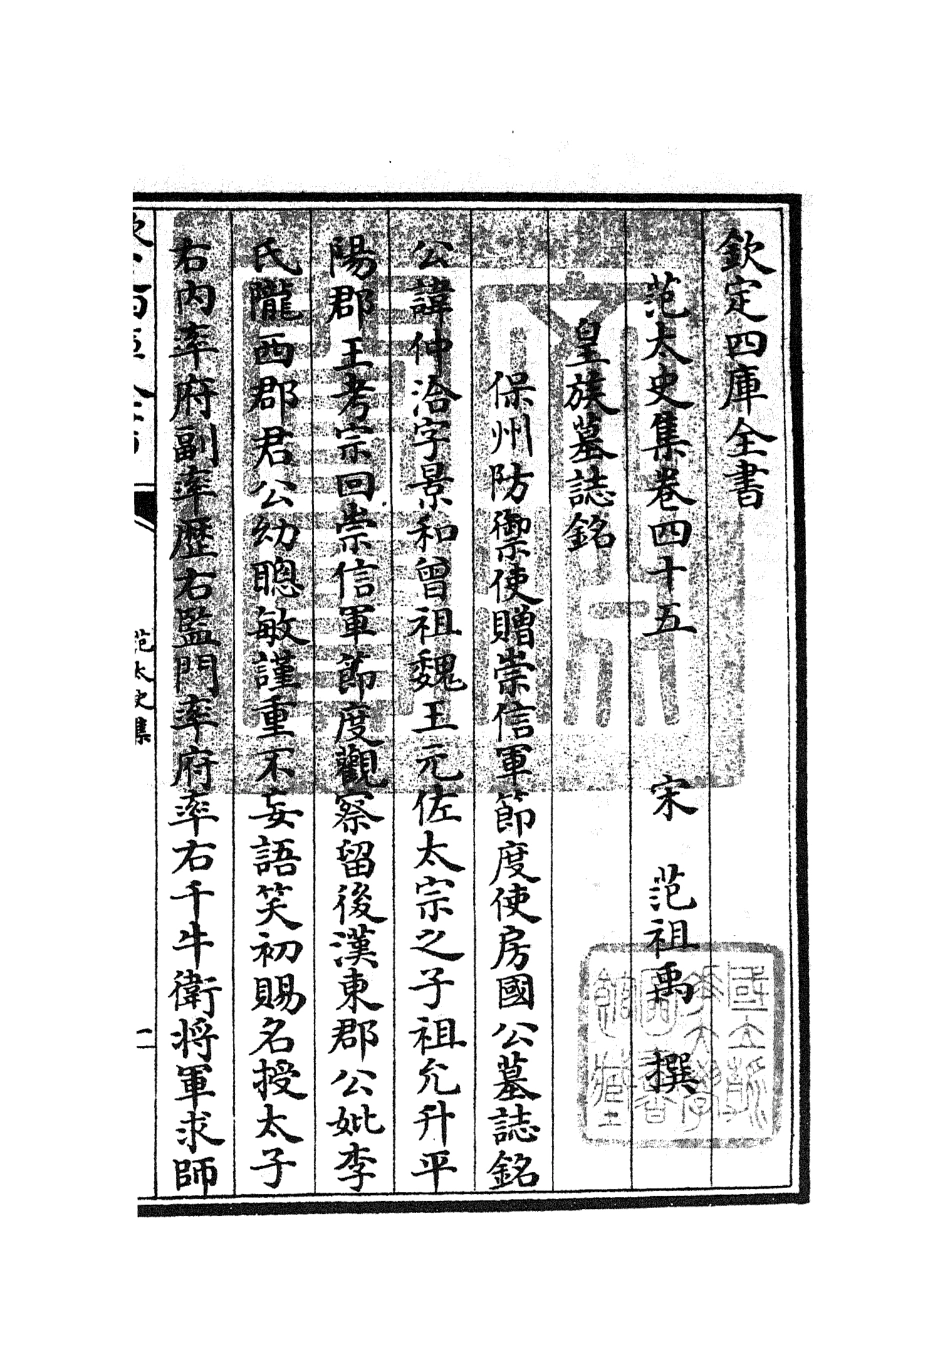 欽定四庫全書
范太史集卷四十五　宋　范祖禹　撰
皇族墓誌銘
保州防禦使贈崇信軍節度使房國公墓誌銘
公諱仲洽字景和曾祖魏王元佐太宗之子祖允升平
陽郡王考宗回崇信軍節度觀察留後漢東郡公妣李
氏隴西郡君公幼聰敏謹重不妄語笑初賜名授太子
右内率府副率歴右監門率府率右千牛衛將軍求師
范太史集